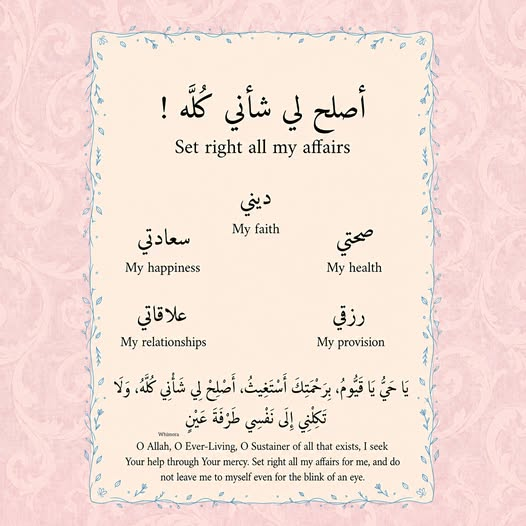 أصلح لي شأني كُلَّه !
Set right all my affairs
ديني
My faith
سعادتي
My happiness
صحتي
My health
علاقاتي
My relationships
رزقي
My provision
يَا حَيُّ يَا قَيُّومُ، بِرَحْمَتِكَ أَسْتَغِيثُ، أَصْلِحْ لِي شَأْنِي كُلَّهُ، وَلَا
تَكِلْنِي إِلَى نَفْسِي طَرْفَةَ عَيْنٍ
Whimora
O Allah, O Ever-Living, O Sustainer of all that exists, I seek
Your help through Your mercy. Set right all my affairs for me, and do
not leave me to myself even for the blink of an eye.